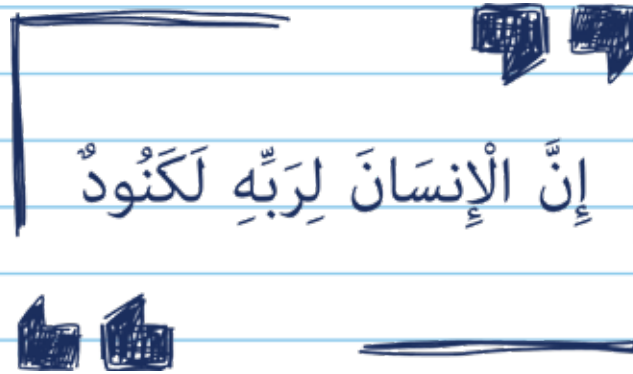 إِنَّ الْإِنسَانَ لِرَبِّهِ لَكَنُودٌ